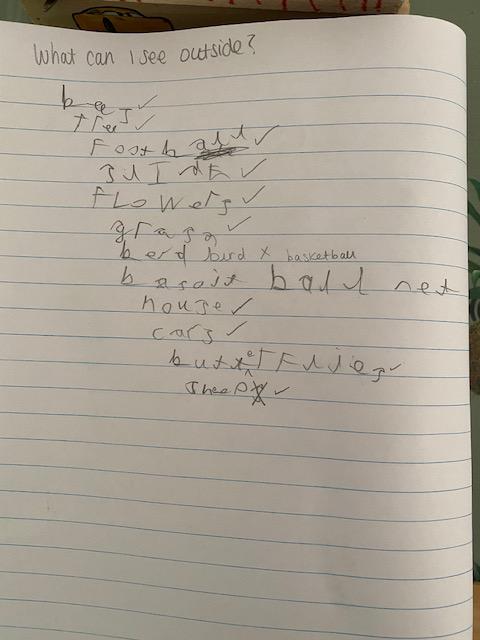 What can I see outside?
bees ✓
Trees ✓
Football ✓
slIdE ✓
FLowers ✓
grass ✓
berd bird x basketball
basoit ball net
house ✓
cars ✓
butterFlies ✓
sheep ✓